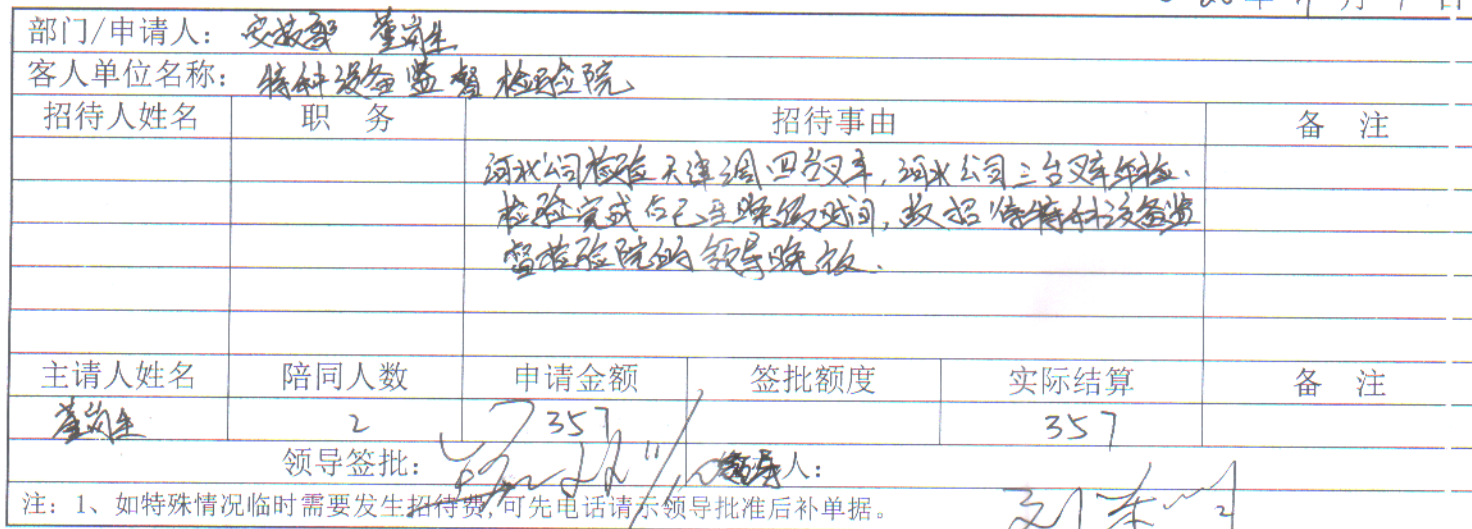 部门/申请人：安技部 董岗生
客人单位名称：特种设备监督检验院
招待人姓名 职 务 招待事由 备 注
河北公司检验天津调四台叉车，河北公司三台叉车年检.
检验完成后已至晚饭时间，故招待特种设备监
督检验院的领导晚饭.
主请人姓名 陪同人数 申请金额 签批额度 实际结算 备 注
2 357 357
领导签批： 人：
注：1、如特殊情况临时需要发生招待费,可先电话请示领导批准后补单据。